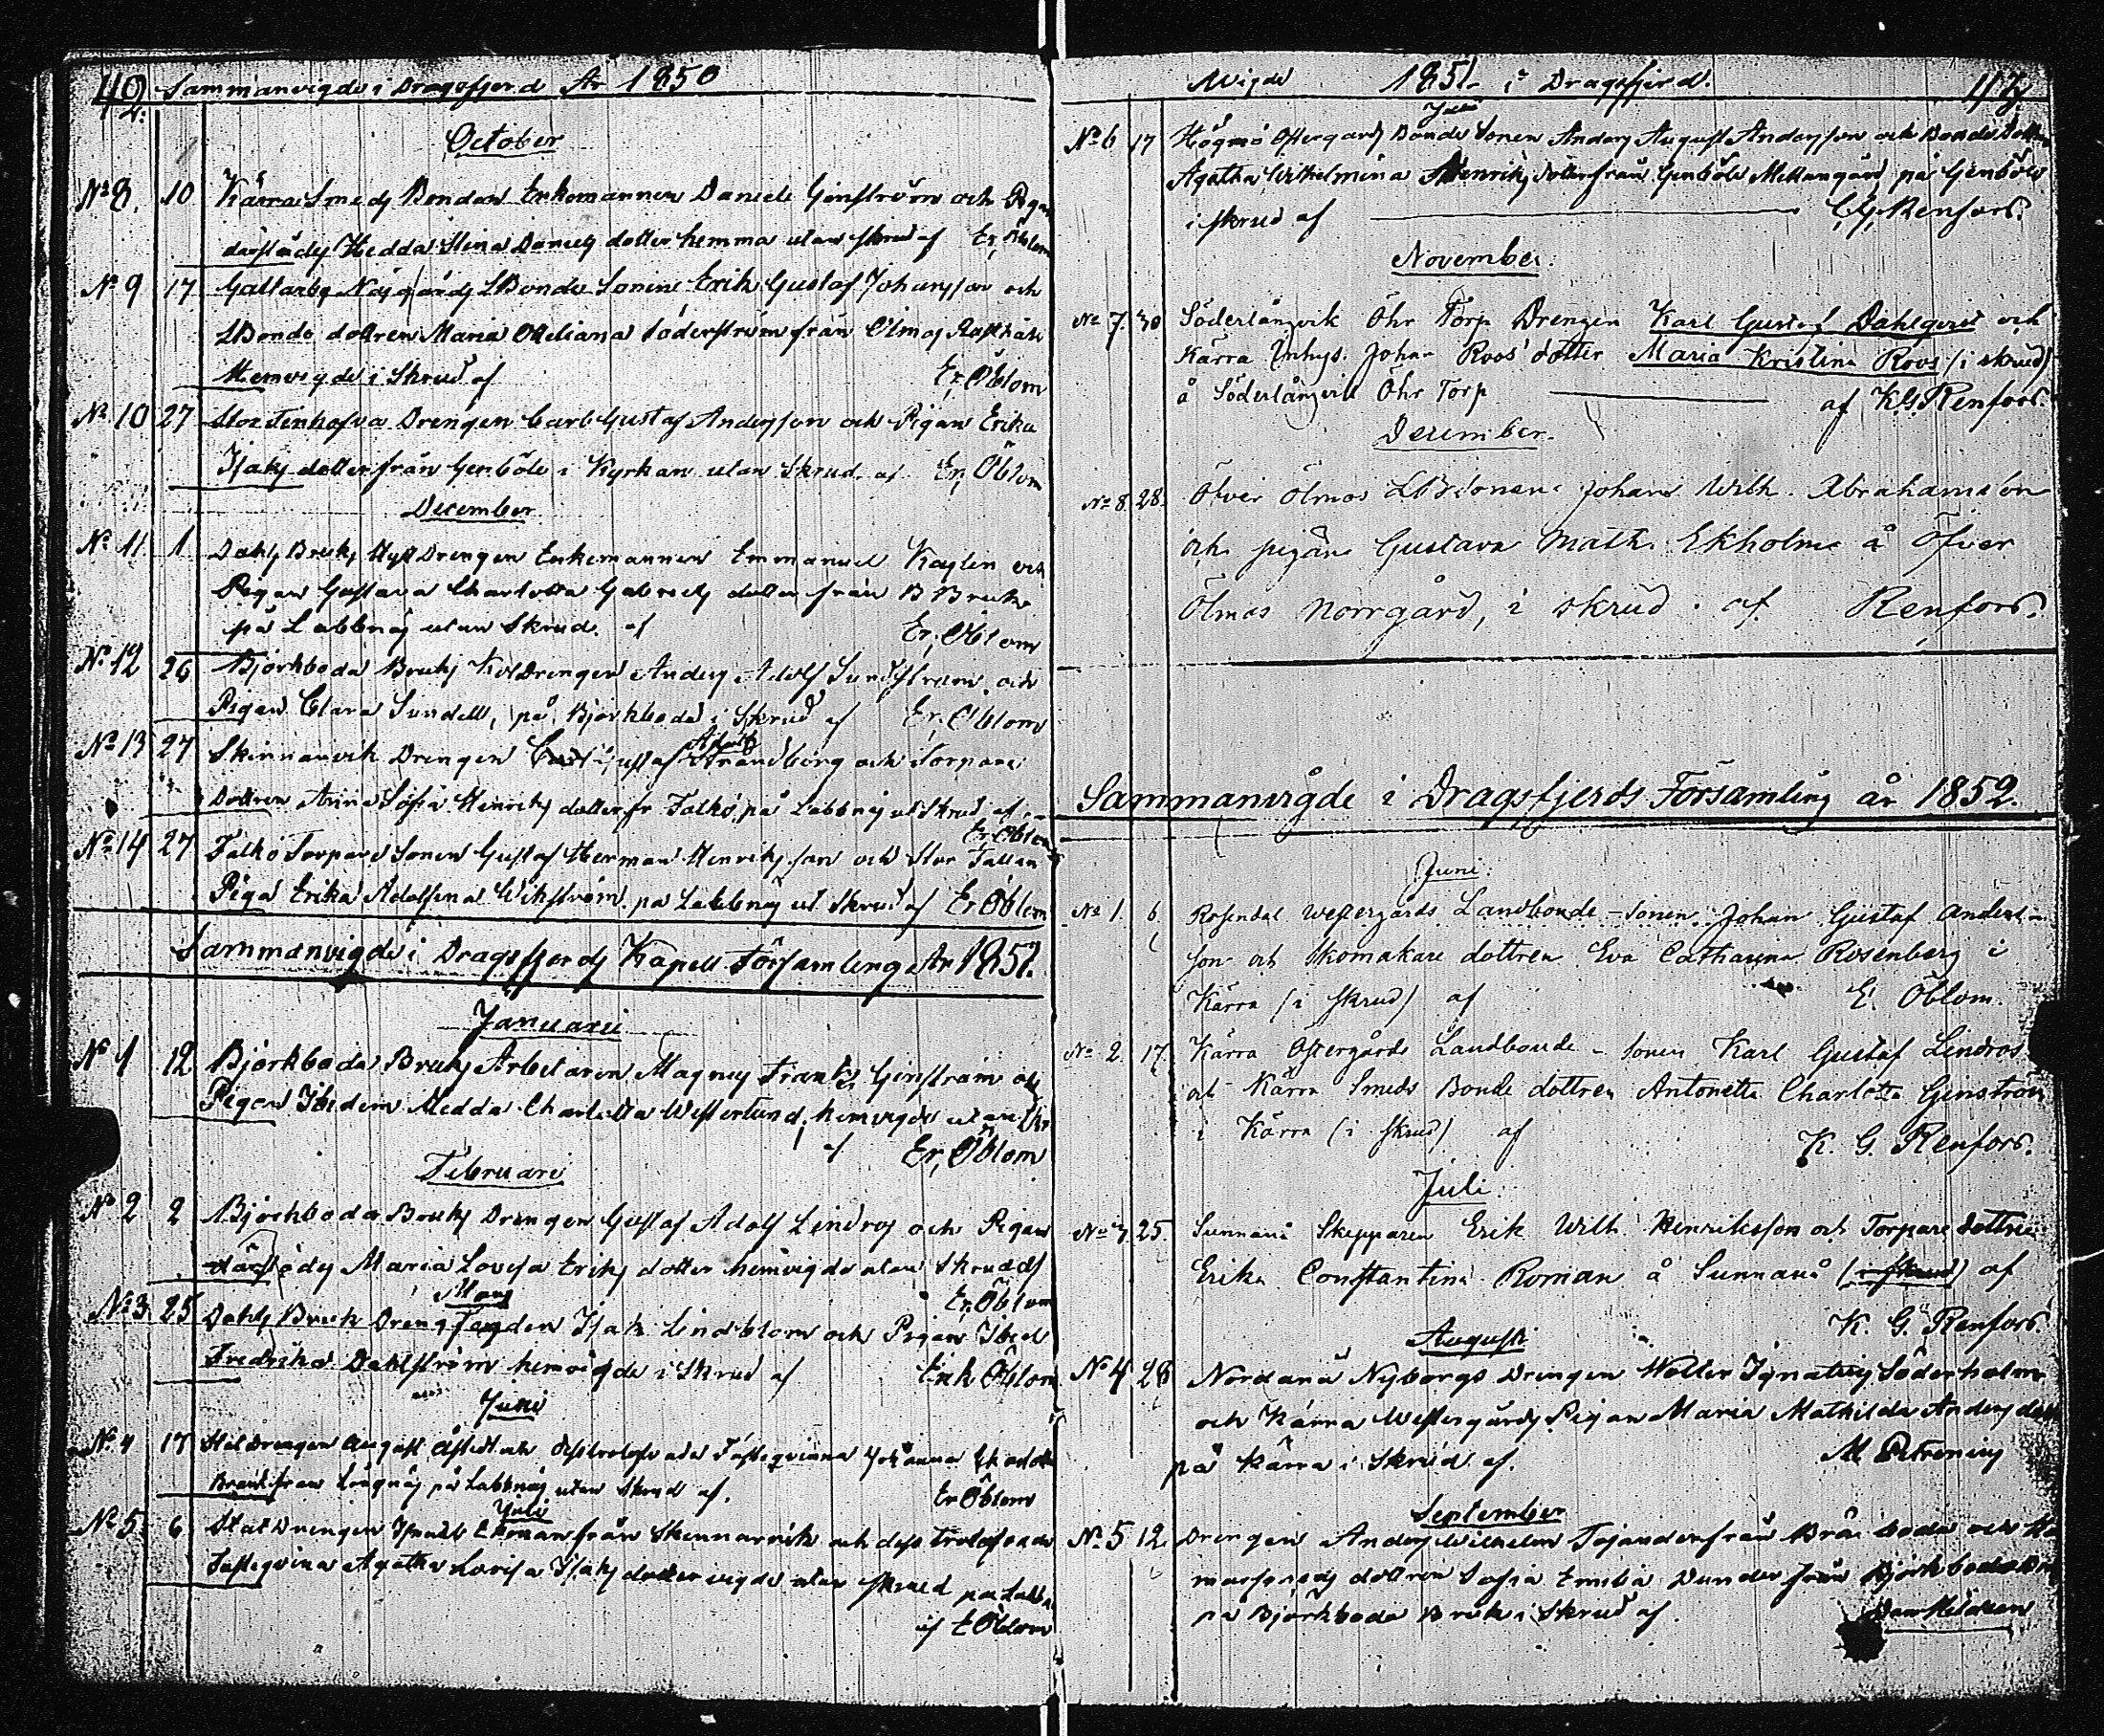 42. Sammanvigde i Dragsfjerd År 1850
October
No 8. 10 Kärra Smeds Bonden Enkemannen Daniel Ginström och Pigan
därstädes Hedda Stina Daniels dotter hemma utan skrud af Er. Öblom
No 9 17 Gallarby Näsgårds LBonde Sonen Erik Gustaf Johansson och
LBonde dottren Maria Söderström från Ölmos
Hemvigde i Skrud af Er. Öblom
No 10 27 Stor Finhofva Drengen Carl Gustaf Andersson och Pigan Erika
Isaks dotter från Genböle i Kyrkan utan Skrud af Er. Öblom
December
No 11. 1 Dahls Bruks Drengen Enkemannen Emmanuel och
Pigan Gustava Charlotta Gabriels dotter från B Bruk
på Labbnäs utan Skrud. af Er. Öblom
No 12 26 Björkboda Bruks KolDrengen Anders Adolf Sundström och
Pigan Clara Sundell, på Björkboda i Skrud af Er. Öblom
No 13 27 Skinnarvik Drengen Gustaf Adolf Strandberg och Torpare
Dottren Anna Sofia Henriks dotter fr. Falkö på Labbnäs ut Skrud af
Er. Öblom
No 14 27 Falkö Torpare Sonen Gustaf Herman Henriksson och Stor
Piga Erika Adolfina Wikström på Labbnäs ut Skrud af Er Öblom
Sammanvigde i Dragsfjerds Kapell Församling År 1851.
Januarii
No 1 12 Björkboda Bruks Arbetaren Magnus Frantz Ginström och
Pigan Ibidem Hedda Charlotta Westerlund, hemvigde utan Skr
af Er, Öblom
Februari
No 2 2 Björkboda Bruks Drengen Gustaf Adolf Lindros och Pigan
därstädes Maria Lovisa Eriks dotter hemvigde utan Skrud af
Er. Öblom
Mars
No 3. 25 Dahls Bruk Dreng Isak Lindblom och Pigan Ibid
Fredrika Dahlström hemvigde i Skrud af Erik Öblom
Juni
No 4 17 Drengen August och Fästeqvinna Johanna
från Långnäs på Labbnäs utan Skrud af. Er Öblom
Juli
No 5. 6 Drengen Ekman från Skinnarvik och dess trolofvade
Fästeqvinna Agatha Lovisa Isaks dotter vigde utan Skrud på Labbn
af E Öblom
Wigde 1851 i Dragsfjerd. 43.
Julii
No 6 17 Högmo Östergårds Bonde Sonen Anders August Andersson och Bonde dottren
Agatha Wilhelmina Henriks dotter från Genböle Mellangård på Genböle
i skrud af C. G. Renfors.
November.
No 7. 30 Söderlångvik Öhr Torp Drengen Karl Gustaf Dahlqvist och
Kärra Inhys. Johan Roos' dotter Maria Kristina Roos (i skrud)
å Söderlångvik Öhr Torp af K. G. Renfors.
December.
No 8. 28. Öfver Ölmos LBSonen Johan Wilh. Abrahamson
och pigan Gustava Math. Ekholm å Öfver
Ölmos Norrgård, i skrud. af Renfors.
Sammanvigde i Dragsfjerds Församling år 1852.
Juni.
No 1. 6. Rosendal Westergårds Landbonde-sonen Johan Gustaf Anders-
son och Skomakare dottren Eva Catharina Rosenberg i
Kärra (i skrud) af E. Öblom.
No 2. 17. Kärra Östergårds Landbonde-sonen Karl Gustaf Lindros
och Kärra Smeds Bonde dottren Antonetta Charlotta Ginström
i Kärra (i skrud) af K. G. Renfors.
Juli
No 3. 25. Sunnanå Skepparen Erik Wilh. Henriksson och Torpare dottren
Erika Constantina Roman å Sunnanå (i skrud) af
K. G. Renfors.
Augusti
No 4 28 Nordanå Nyborgs Drengen Wolter Ignatius Söderholm
och Kärra Westergårds Pigan Maria Mathilda Anders dotter
på Kärra i Skrud af. M. Petronius
September
No 5 12. Drengen Anders Wilhelm Tojander från boda och
dottren Sofia Emilia Dunder från Björkboda
på Björkboda Bruk i Skrud af.